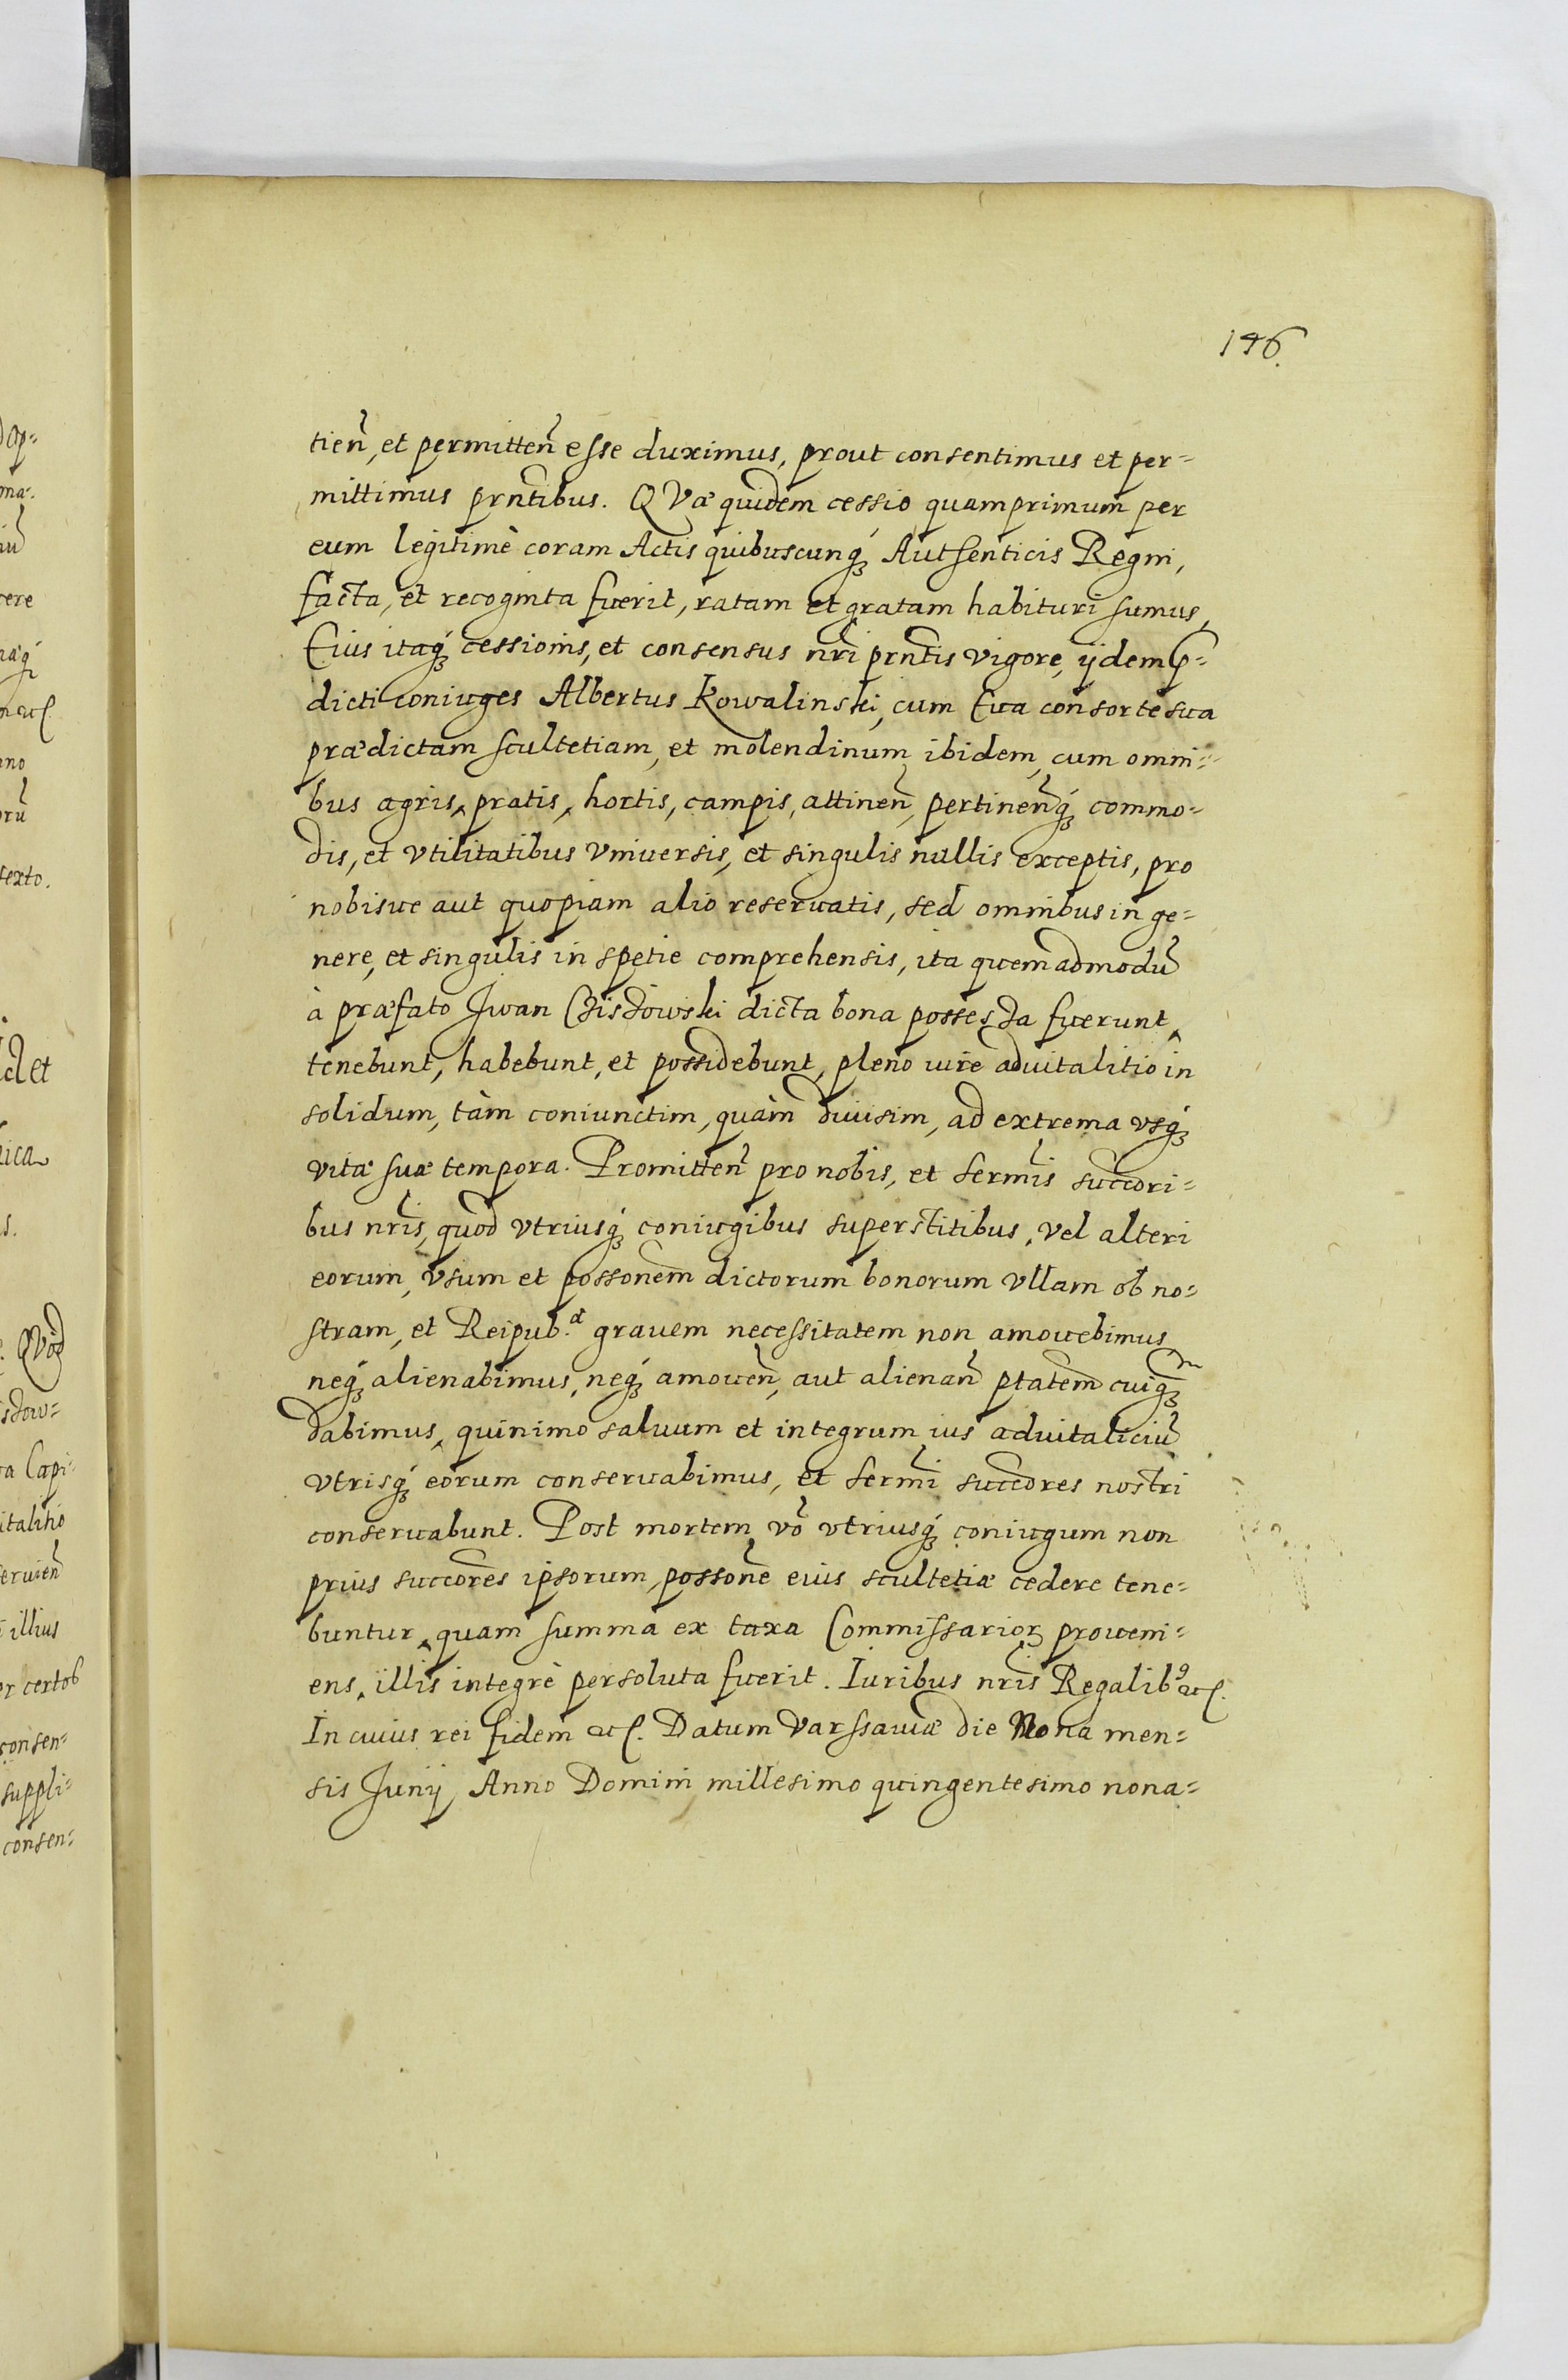 146.
tien̄, et permitten̄ esse duximus, prout consentimus et per=
mittimus prn̄tibus. QVæ quidem cessio quamprimum per
eum legitimè coram Actis quibuscunq́ꝫ Authenticis Regni,
facta, et recognita fuerit, ratam et gratam habituri sumus,
Eius itaq́ꝫ cessionis, et consensus nr̄i prn̄tis vigore, ijdem p̄=
dicti coniuges Albertus Kowalinski, cum Eua consorte sua
prædictam scultetiam, et molendinum ibidem, cum omni=
bus agris, pratis, hortis, campis, attinen̄, pertinen̄q́ꝫ commo=
dis, et vtilitatibus vniuersis, et singulis nullis exceptis, pro
nobisue aut quopiam alio reseruatis, sed omnibus in ge=
nere, et singulis in spetie comprehensis, ita quemadmodū
à præfato Iwan dicta bona possessa fuerunt,
tenebunt, habebunt, et possidebunt, pleno iure aduitalitio in
solidum, tàm coniunctim, quàm diuisim, ad extrema vsq́ꝫ
vitæ suæ tempora. Promitten̄ pro nobis, et Serm̄is succ̄ori=
bus nr̄is, quod vtriusq́ꝫ coniugibus superstitibus, vel alteri
eorum, vsum et poss̄onem dictorum bonorum vllam ob no=
stram, et Reipub. grauem necessitatem non amouebimus
neq́ꝫ alienabimus, neq́ꝫ amouen̄, aut alienan̄ p̄tatem cuiq́ꝫm
dabimus, quinimo saluum et integrum ius aduitaliciū
vtrisq́ꝫ eorum conseruabimus, et Serm̄i succ̄ores nostri
conseruabunt. Post mortem vō vtriusq́ꝫ coniugum non
prius succ̄ores ipsorum, poss̄onē eius scultetiæ cedere tene=
buntur, quam summa ex taxa Commissarioꝝ proueni=
ens, illis integrè persoluta fuerit. Iuribus nr̄is Regalibꝰ etc.
In cuius rei fidem etc. Datum Varssauiæ die Nona men=
sis Junij Anno Domini millesimo quingentesimo nona=
dap=
ma=
cere
no
texto.
et
ica
s.
QVòd
sdow=
a Capi=
italitio
eruien̄
illius
er certos
consen=
suppli=
consen=